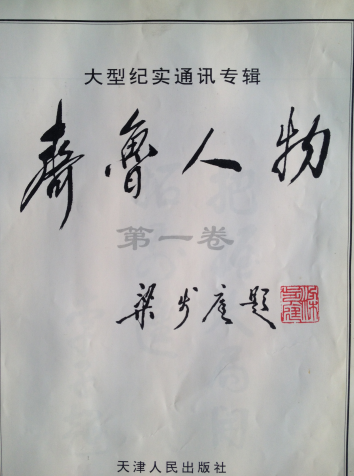 大型纪实通讯专辑
齊魯人物
第一卷
梁步庭题
天津人民出版社